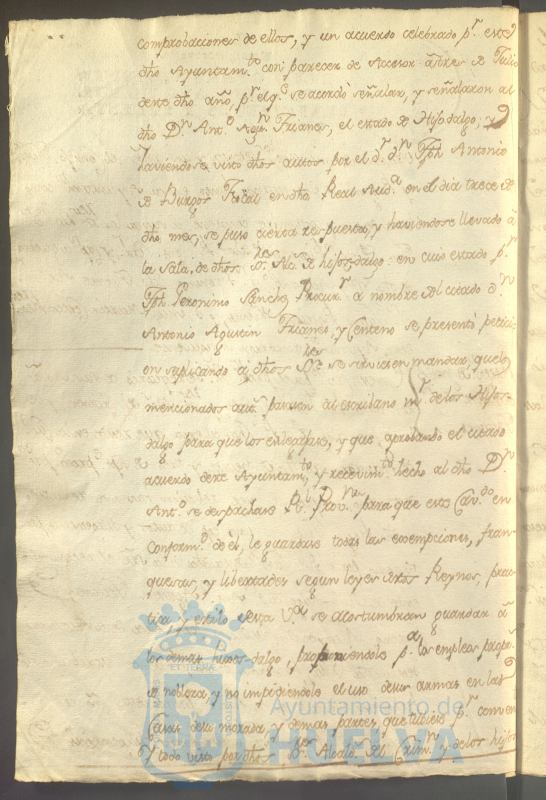 comprobaciones de ellos, y un acuerdo celebrado pr. este
dho Ayuntamto. con parecer de Accesor a tres de Julio
deste dho año, pr. el q.e se acordò señalar, y señalaron al
dho Dn. Anto. Agn. Frianes, el estado de Hijodalgo, y
haviendose visto dhos autos por el dr. dn. Jph. Antonio
de Burgos Fiscal en dha Real Auda. en el dia trece de
dho mes, se puso cierta respuesta, y haviendose llevado à
la Sala, de dhos Sres. Alces. de hijos-dalgo: en cuio estado pr.
Jph. Geronimo Sanchez Procur.r à nombre del citado dn.
Antonio Agustin Frianes, y Centeno se presentò petici-
on suplicando à dhos Sres. se sirviesen mandar, que los
mencionados auts. pasasen al escribano mr. de los Hijos-
dalgo para que los entregase, y que aprobando el citado
acuerdo deste Ayuntamto. y recevimto. hecho al dho Dn.
Anto. se despachase Rl. Provn. para que este Cavdo. en
conformd. de èl, le guardase todas las exempciones, fran-
quesas, y libertades segun leyes destos Reynos, prac-
tica y estilo desta Va. se acostumbran guardar à
los demas hijos-dalgo, proponiendole pa. los empleos propios
de nobleza, y no impidiendole el uso de sus armas en las
Casas de su morada, y demas partes que tubiese pr. conven
Y todo visto por dhos Sres. Alcalds. del Crimn. y de los hijos
Ayuntamiento de
HUELVA